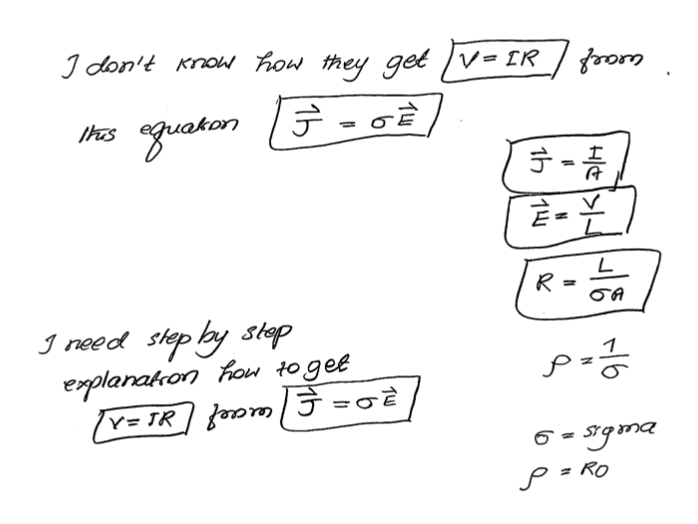 I don't know how they get V = IR from .
this equation J⃗ = σE⃗
J⃗ = I/A
E⃗ = V/L
R = L/σA
I need step by step
explanation how to get
V = IR from J⃗ = σE⃗
ρ = 1/σ
σ = sigma
ρ = RO